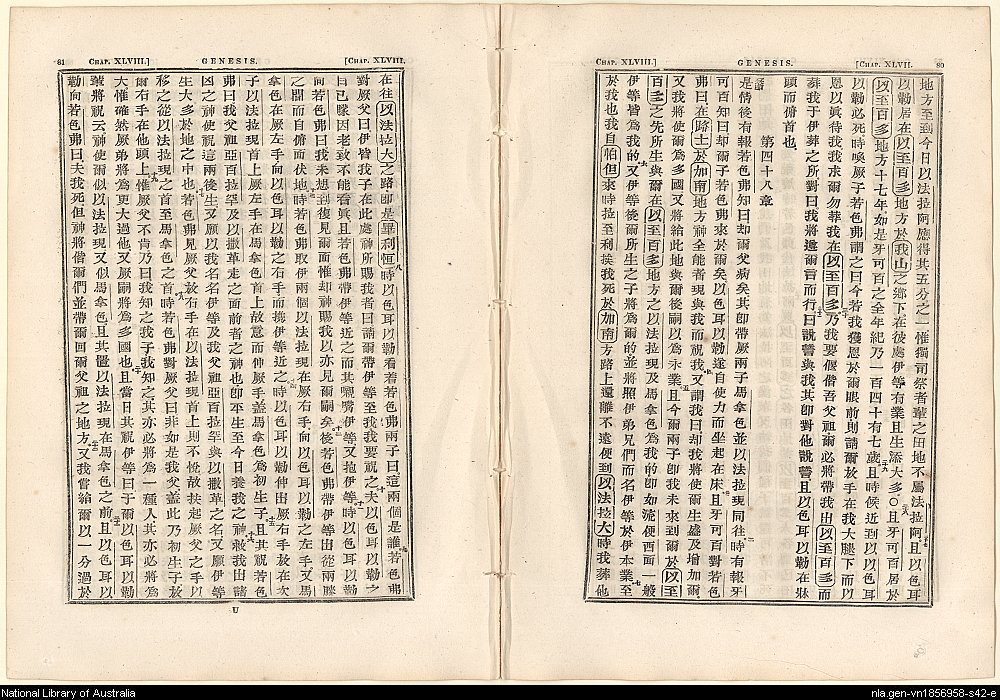 CHAP. XLVIII.] GENESIS. [CHAP. XLVII. 80
地方至到今日以法拉阿應得其五分之一惟獨司祭者輩之田地不屬法拉阿且以色耳
以勒居在以至百多地方於我山之鄉下在彼處伊等有業且生添大多○且牙可百居於
以至百多地方十七年如是牙可百之全年紀乃一百四十有七歲且時候近到以以色耳
以勒必死時喚厥子若色弗謂之曰今若我獲恩於爾眼前則請爾放手在我大腿下而以
恩以眞待我我求爾勿葬我在以至百多乃我要偃偕吾父祖爾必將帶我出以至百多而
葬我于伊葬之所對曰我將遵爾言而行曰說誓與我其卽對他說誓且以色耳以勒在牀
頭而俯首也
第四十八章
是情後有報若色弗知曰却爾父病矣其卽帶厥兩子馬拿色並以法拉現同往時有報牙
可百知曰却爾子若色弗來於爾矣以色耳以勒遂自使力而坐起在床且牙可百對若色
弗曰在路士於加南地方神全能者現與我而祝我又謂我曰却我將使爾生盛及增加爾
又我將使爾爲多國又將給此地與爾後嗣以爲永業且今爾兩子卽我未來到爾於以至
百多之先所生與爾在以至百多地方之以法拉現及馬拿色爲我的卽如流便西面一般
伊等皆爲我的又伊等後爾所生之子將爲爾的並將照伊弟兄們而名伊等於伊本業至
於我也我自怕但來時拉至利挨我死於加南方路上還離不遠便到以法拉大時我葬他
81 CHAP. XLVIII.] GENESIS. [CHAP. XLVIII.
在往以法拉大之路卽是畢利恒時以色耳以勒看着若色弗兩子曰這兩個是誰若色弗
對厥父曰伊皆我子在此處神所賜我者曰請爾帶伊等至我我要祝之夫以色耳以勒之
目已矇因老致不能看眞且若色弗帶伊等近之而其囇嘴伊等又抱伊等時以色耳以勒
向若色弗曰我未想到復見爾面惟却神賜我以亦見爾嗣矣後若色弗帶伊等出從兩膝
之間而自俯而伏地時若色弗取伊兩個以法拉現在厥右手向以色耳以勒之左手又馬
拿色在厥左手向以色耳以勒之右手而攜伊等近之時以色耳以勒伸出厥右手放在次
子以法拉現首上厥左手在馬拿色首上故意而伸厥手蓋馬拿色爲初生子且其祝若色
弗曰我父祖亞百拉罕及以撒革走之面前者之神也卽平生至今日養我之神救我出諸
凶之神使祝這兩後生又願以我名名伊等及我父祖亞百拉罕與以撒革之名又願伊等
生大多於地之中也若色弗見厥父放右手在以法拉現首上則不悅故扶起厥父之手以
移之從以法拉現之首至馬拿色之首時若色弗對厥父曰非如是我父蓋此乃初生子放
爾右手在他頭上惟厥父不肯乃曰我知之我子我知之其亦必將爲一種人其亦必將爲
大惟確然厥弟將爲更大過他又厥嗣將爲多國也且當日其祝伊等曰于爾以色耳以勒
輩將祝云神使爾似以法拉現又似馬拿色且其置以法拉現在馬拿色之前且以色耳以
勒向若色弗曰夫我死但神將偕爾們並帶爾回爾父祖之地方又我嘗給爾以一分過於
U
National Library of Australia
nla.gen-vn1856958-s42-e